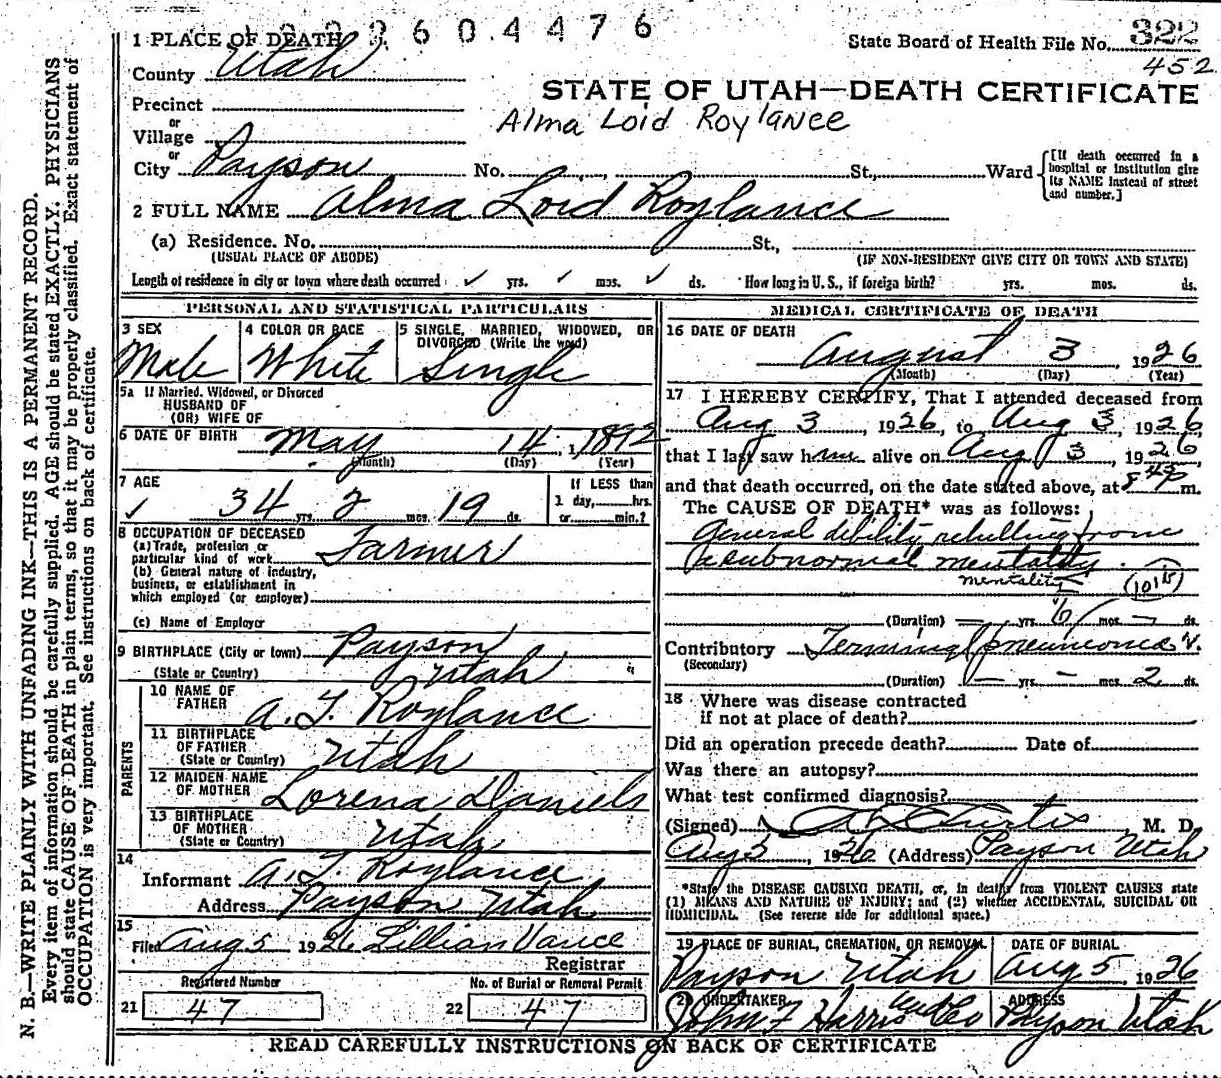 2604476
State Board of Health File No. 322
452
STATE OF UTAH—DEATH CERTIFICATE
Alma Loid Roylance
1 PLACE OF DEATH
County Utah
Precinct
or
Village
or
City Payson No. , St., Ward [If death occurred in a hospital or institution give its NAME instead of street and number.]
2 FULL NAME Alma Loid Roylance
(a) Residence. No. St.,
(USUAL PLACE OF ABODE) (IF NON-RESIDENT GIVE CITY OR TOWN AND STATE)
Length of residence in city or town where death occurred ✓ yrs. ✓ mos. ✓ ds. How long in U. S., if foreign birth? yrs. mos. ds.
PERSONAL AND STATISTICAL PARTICULARS
3 SEX Male
4 COLOR OR RACE White
5 SINGLE, MARRIED, WIDOWED, OR DIVORCED (Write the word) Single
5a If Married, Widowed, or Divorced
HUSBAND OF
(OR) WIFE OF
6 DATE OF BIRTH May 14, 1892
(Month) (Day) (Year)
7 AGE
✓ 34 yrs. 2 mos. 19 ds.
If LESS than
1 day, hrs.
or min.?
8 OCCUPATION OF DECEASED
(a) Trade, profession or
particular kind of work Farmer
(b) General nature of industry,
business, or establishment in
which employed (or employer)
(c) Name of Employer
9 BIRTHPLACE (City or town) Payson
(State or Country) Utah
PARENTS
10 NAME OF FATHER A. T. Roylance
11 BIRTHPLACE OF FATHER (State or Country) Utah
12 MAIDEN NAME OF MOTHER Lorena Daniels
13 BIRTHPLACE OF MOTHER (State or Country) Utah
14
Informant A. T. Roylance
Address Payson Utah
15
Filed Aug 5 1926 Lillian Vance
Registrar
Registered Number
21 47
No. of Burial or Removal Permit
22 47
MEDICAL CERTIFICATE OF DEATH
16 DATE OF DEATH
August 3 1926
(Month) (Day) (Year)
17 I HEREBY CERTIFY, That I attended deceased from
Aug 3, 1926, to Aug 3, 1926,
that I last saw him alive on Aug 3, 1926
and that death occurred, on the date stated above, at 8 43 P m.
The CAUSE OF DEATH* was as follows:
General dibility resulting from
a subnormal mentality.
mentality
(Duration) — yrs. 6 mos. — ds.
Contributory Terminal pneumonia
(Secondary)
(Duration) — yrs. — mos. 2 ds.
18 Where was disease contracted
if not at place of death?
Did an operation precede death? Date of
Was there an autopsy?
What test confirmed diagnosis?
(Signed) Curtis M. D.
Aug 5, 1926 (Address) Payson Utah
*State the DISEASE CAUSING DEATH, or, in deaths from VIOLENT CAUSES state
(1) MEANS AND NATURE OF INJURY; and (2) whether ACCIDENTAL, SUICIDAL OR
HOMICIDAL. (See reverse side for additional space.)
19 PLACE OF BURIAL, CREMATION, OR REMOVAL
Payson Utah
DATE OF BURIAL
Aug 5, 1926
20 UNDERTAKER
John F Harris Und Co
ADDRESS
Payson Utah
READ CAREFULLY INSTRUCTIONS ON BACK OF CERTIFICATE
N. B.—WRITE PLAINLY WITH UNFADING INK—THIS IS A PERMANENT RECORD.
Every item of information should be carefully supplied. AGE should be stated EXACTLY. PHYSICIANS
should state CAUSE OF DEATH in plain terms, so that it may be properly classified. Exact statement of
OCCUPATION is very important. See instructions on back of certificate.